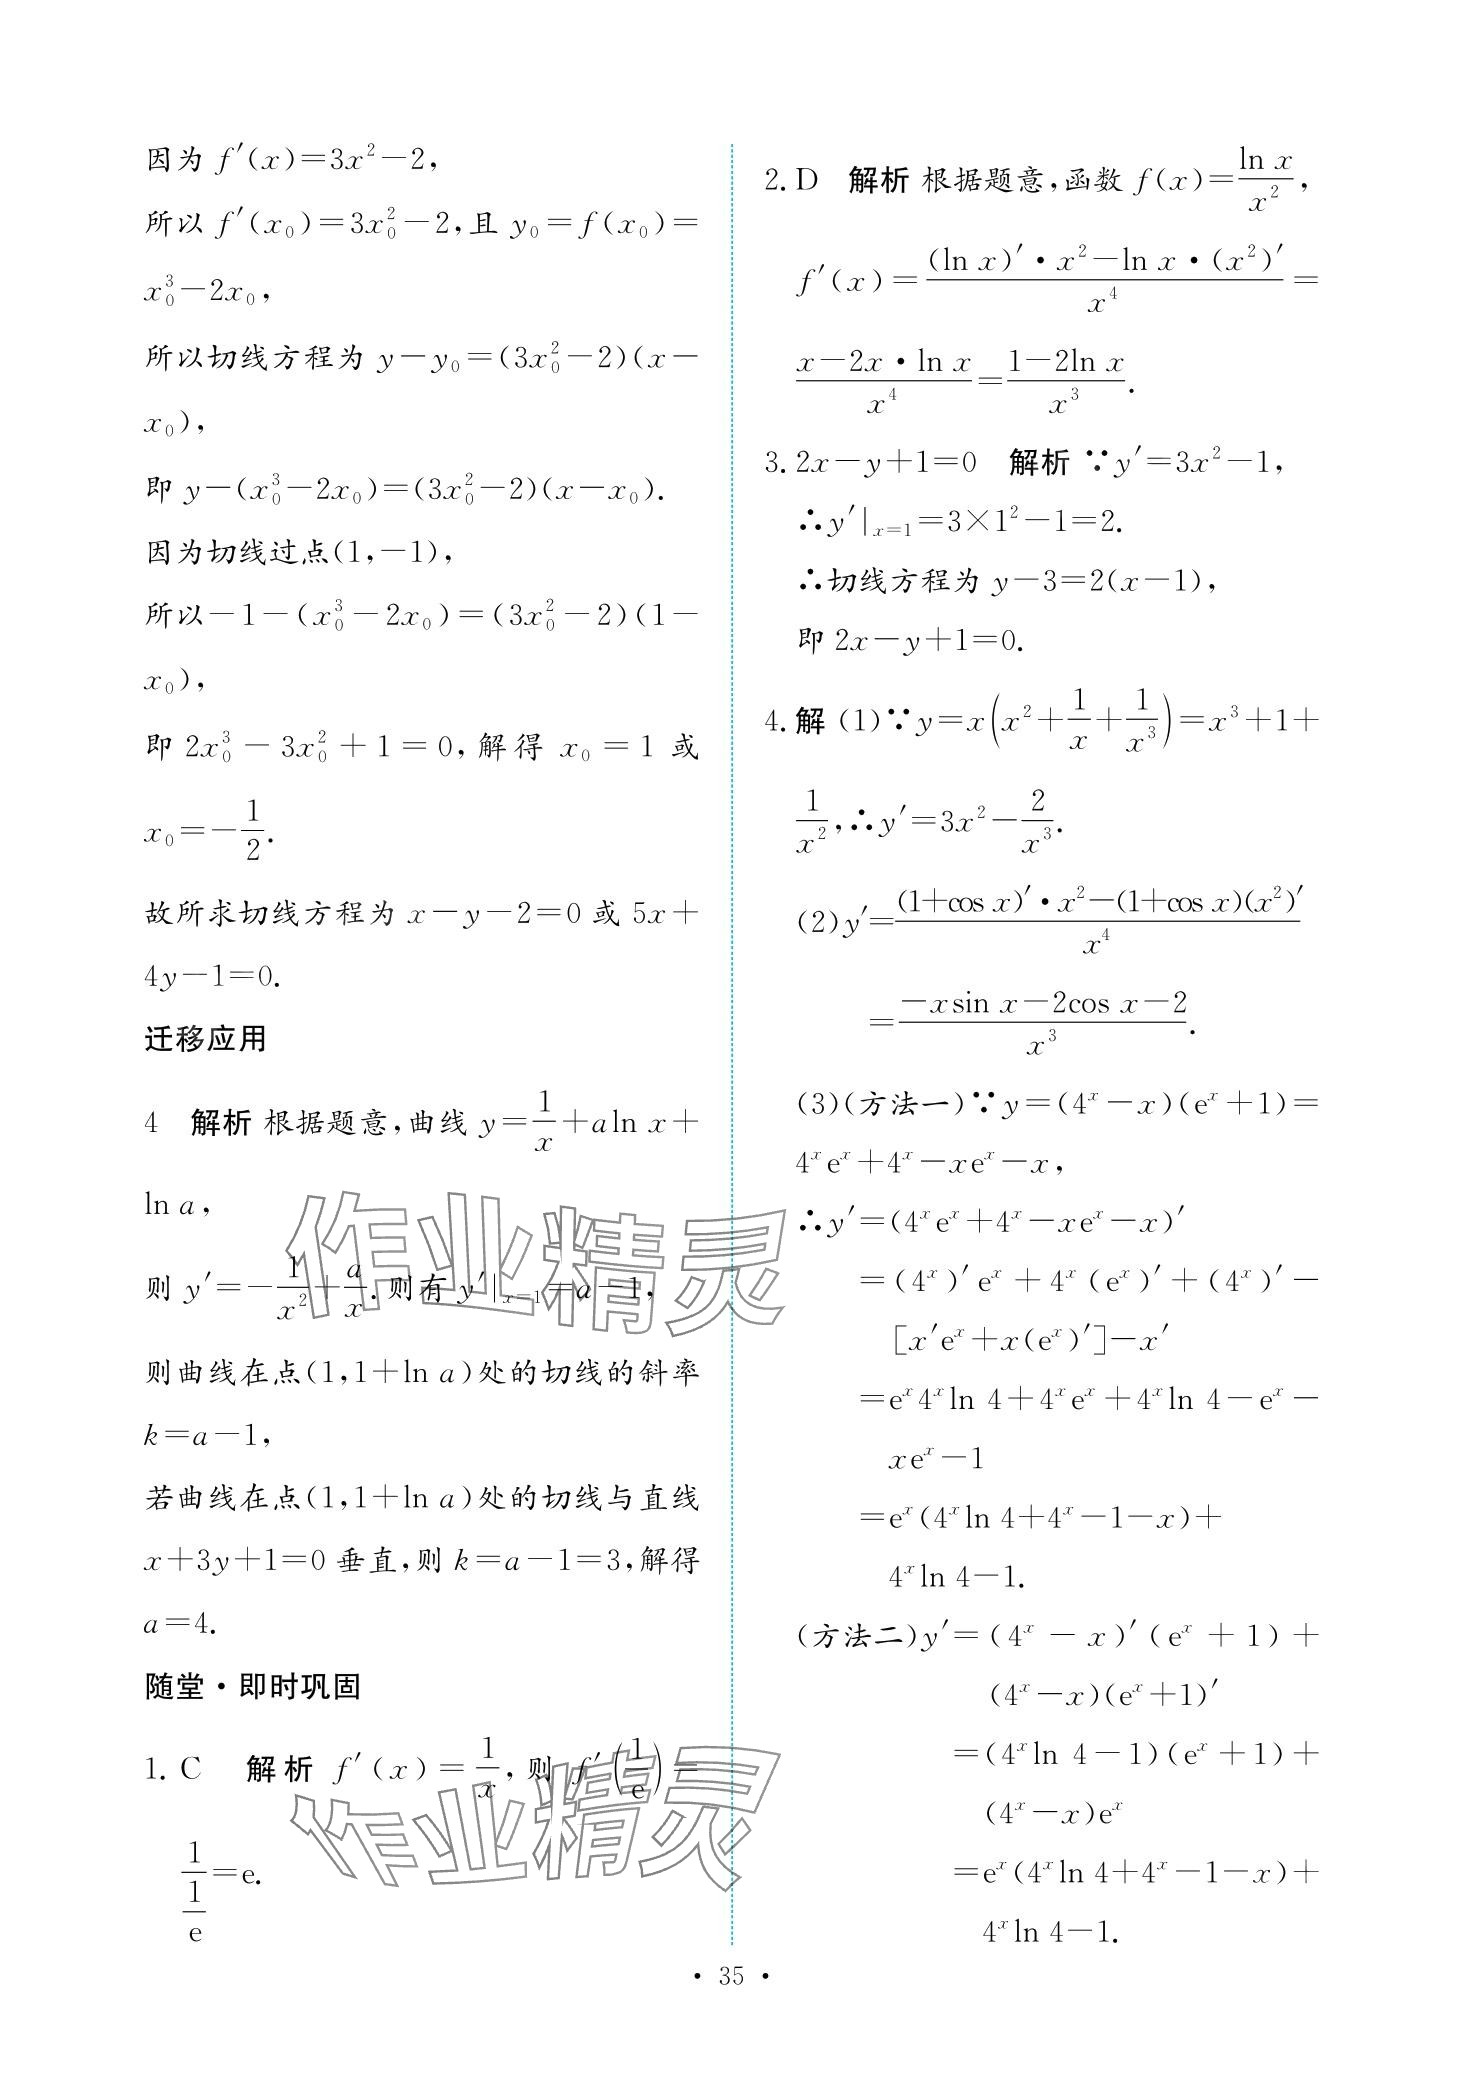 因为 f′(x)=3x²−2,
所以 f′(x₀)=3x₀²−2,且 y₀=f(x₀)=
x₀³−2x₀,
所以切线方程为 y−y₀=(3x₀²−2)(x−
x₀),
即 y−(x₀³−2x₀)=(3x₀²−2)(x−x₀).
因为切线过点(1,−1),
所以−1−(x₀³−2x₀)=(3x₀²−2)(1−
x₀),
即 2x₀³−3x₀²+1=0,解得 x₀=1 或
x₀=−1/2.
故所求切线方程为 x−y−2=0 或 5x+
4y−1=0.
迁移应用
4 解析 根据题意,曲线 y=1/x+aln x+
ln a,
则 y′=−1/x²+a/x.则有 y′|ₓ₌₁=a−1,
则曲线在点(1,1+ln a)处的切线的斜率
k=a−1,
若曲线在点(1,1+ln a)处的切线与直线
x+3y+1=0 垂直,则 k=a−1=3,解得
a=4.
随堂·即时巩固
1. C 解析 f′(x)=1/x,则 f′(1/e)=
1/(1/e)=e.
2. D 解析 根据题意,函数 f(x)=ln x/x²,
f′(x)=[(ln x)′·x²−ln x·(x²)′]/x⁴=
(x−2x·ln x)/x⁴=(1−2ln x)/x³.
3. 2x−y+1=0 解析 ∵y′=3x²−1,
∴y′|ₓ₌₁=3×1²−1=2.
∴切线方程为 y−3=2(x−1),
即 2x−y+1=0.
4. 解 (1)∵y=x(x²+1/x+1/x³)=x³+1+
1/x²,∴y′=3x²−2/x³.
(2)y′=[(1+cos x)′·x²−(1+cos x)(x²)′]/x⁴
=(−xsin x−2cos x−2)/x³.
(3)(方法一)∵y=(4ˣ−x)(eˣ+1)=
4ˣeˣ+4ˣ−xeˣ−x,
∴y′=(4ˣeˣ+4ˣ−xeˣ−x)′
=(4ˣ)′eˣ+4ˣ(eˣ)′+(4ˣ)′−
[x′eˣ+x(eˣ)′]−x′
=eˣ4ˣln 4+4ˣeˣ+4ˣln 4−eˣ−
xeˣ−1
=eˣ(4ˣln 4+4ˣ−1−x)+
4ˣln 4−1.
(方法二)y′=(4ˣ−x)′(eˣ+1)+
(4ˣ−x)(eˣ+1)′
=(4ˣln 4−1)(eˣ+1)+
(4ˣ−x)eˣ
=eˣ(4ˣln 4+4ˣ−1−x)+
4ˣln 4−1.
作业精灵
作业精灵
· 35 ·